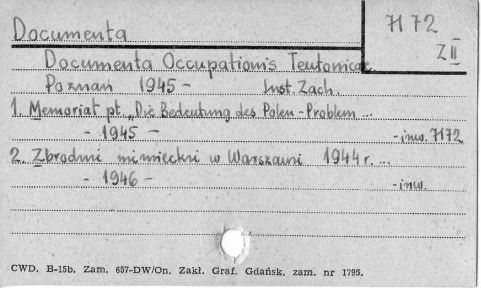 Documenta
7172
Z II
Documenta Occupationis Teutonicae
Poznań 1945 – Inst. Zach.
1. Memoriał pt. „Die Bedeutung des Polen-Problem ...
- 1945 - -inw. 7172
2. Zbrodni niemieckni w Warszawi 1944 r. ...
- 1946 - -inw.
CWD. B-15b. Zam. 657-DW/On. Zakł. Graf. Gdańsk, zam. nr 1795.